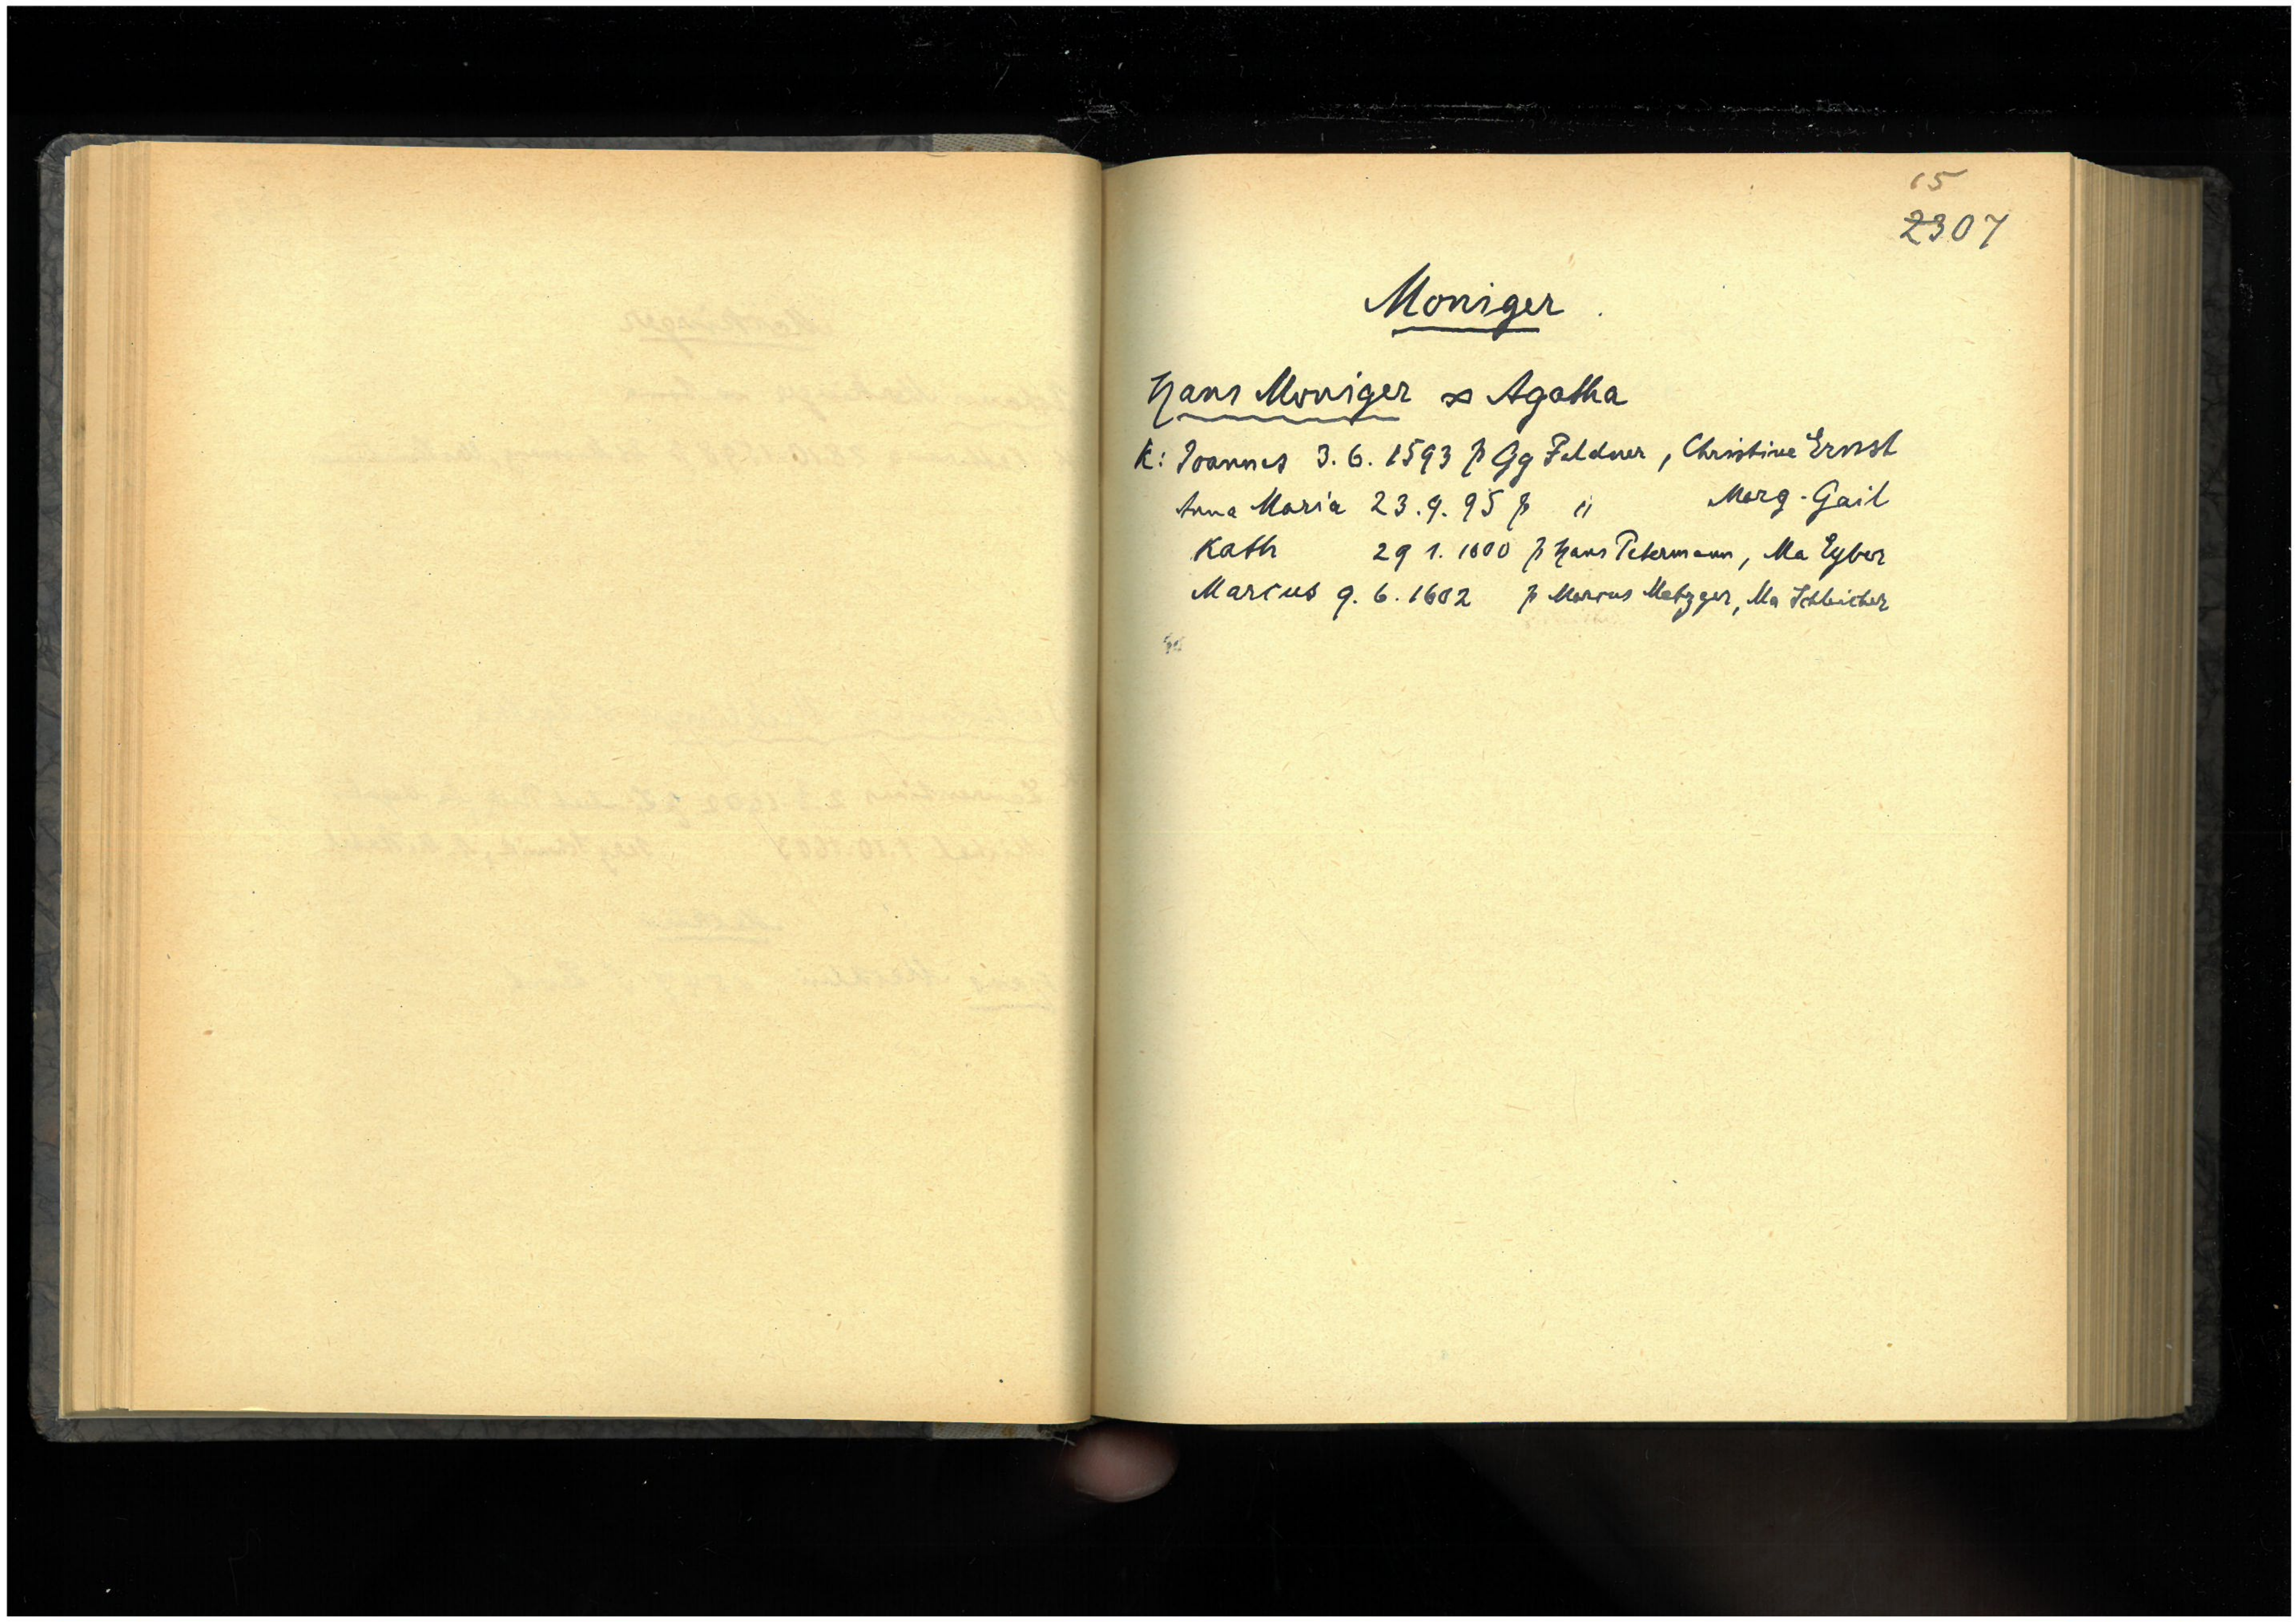 15
2307
Moniger
Hans Moniger ∞ Agatha
K: Joannes 3.6.1593 p Gg Feldner, Christine Ernst
Anna Maria 23.9.95 p " Marg. Gail
Kath 29 1. 1600 p Hans Petermann, Ma Eyber
Marcus 9.6.1602 p Marcus Metzger, Ma Schleicher